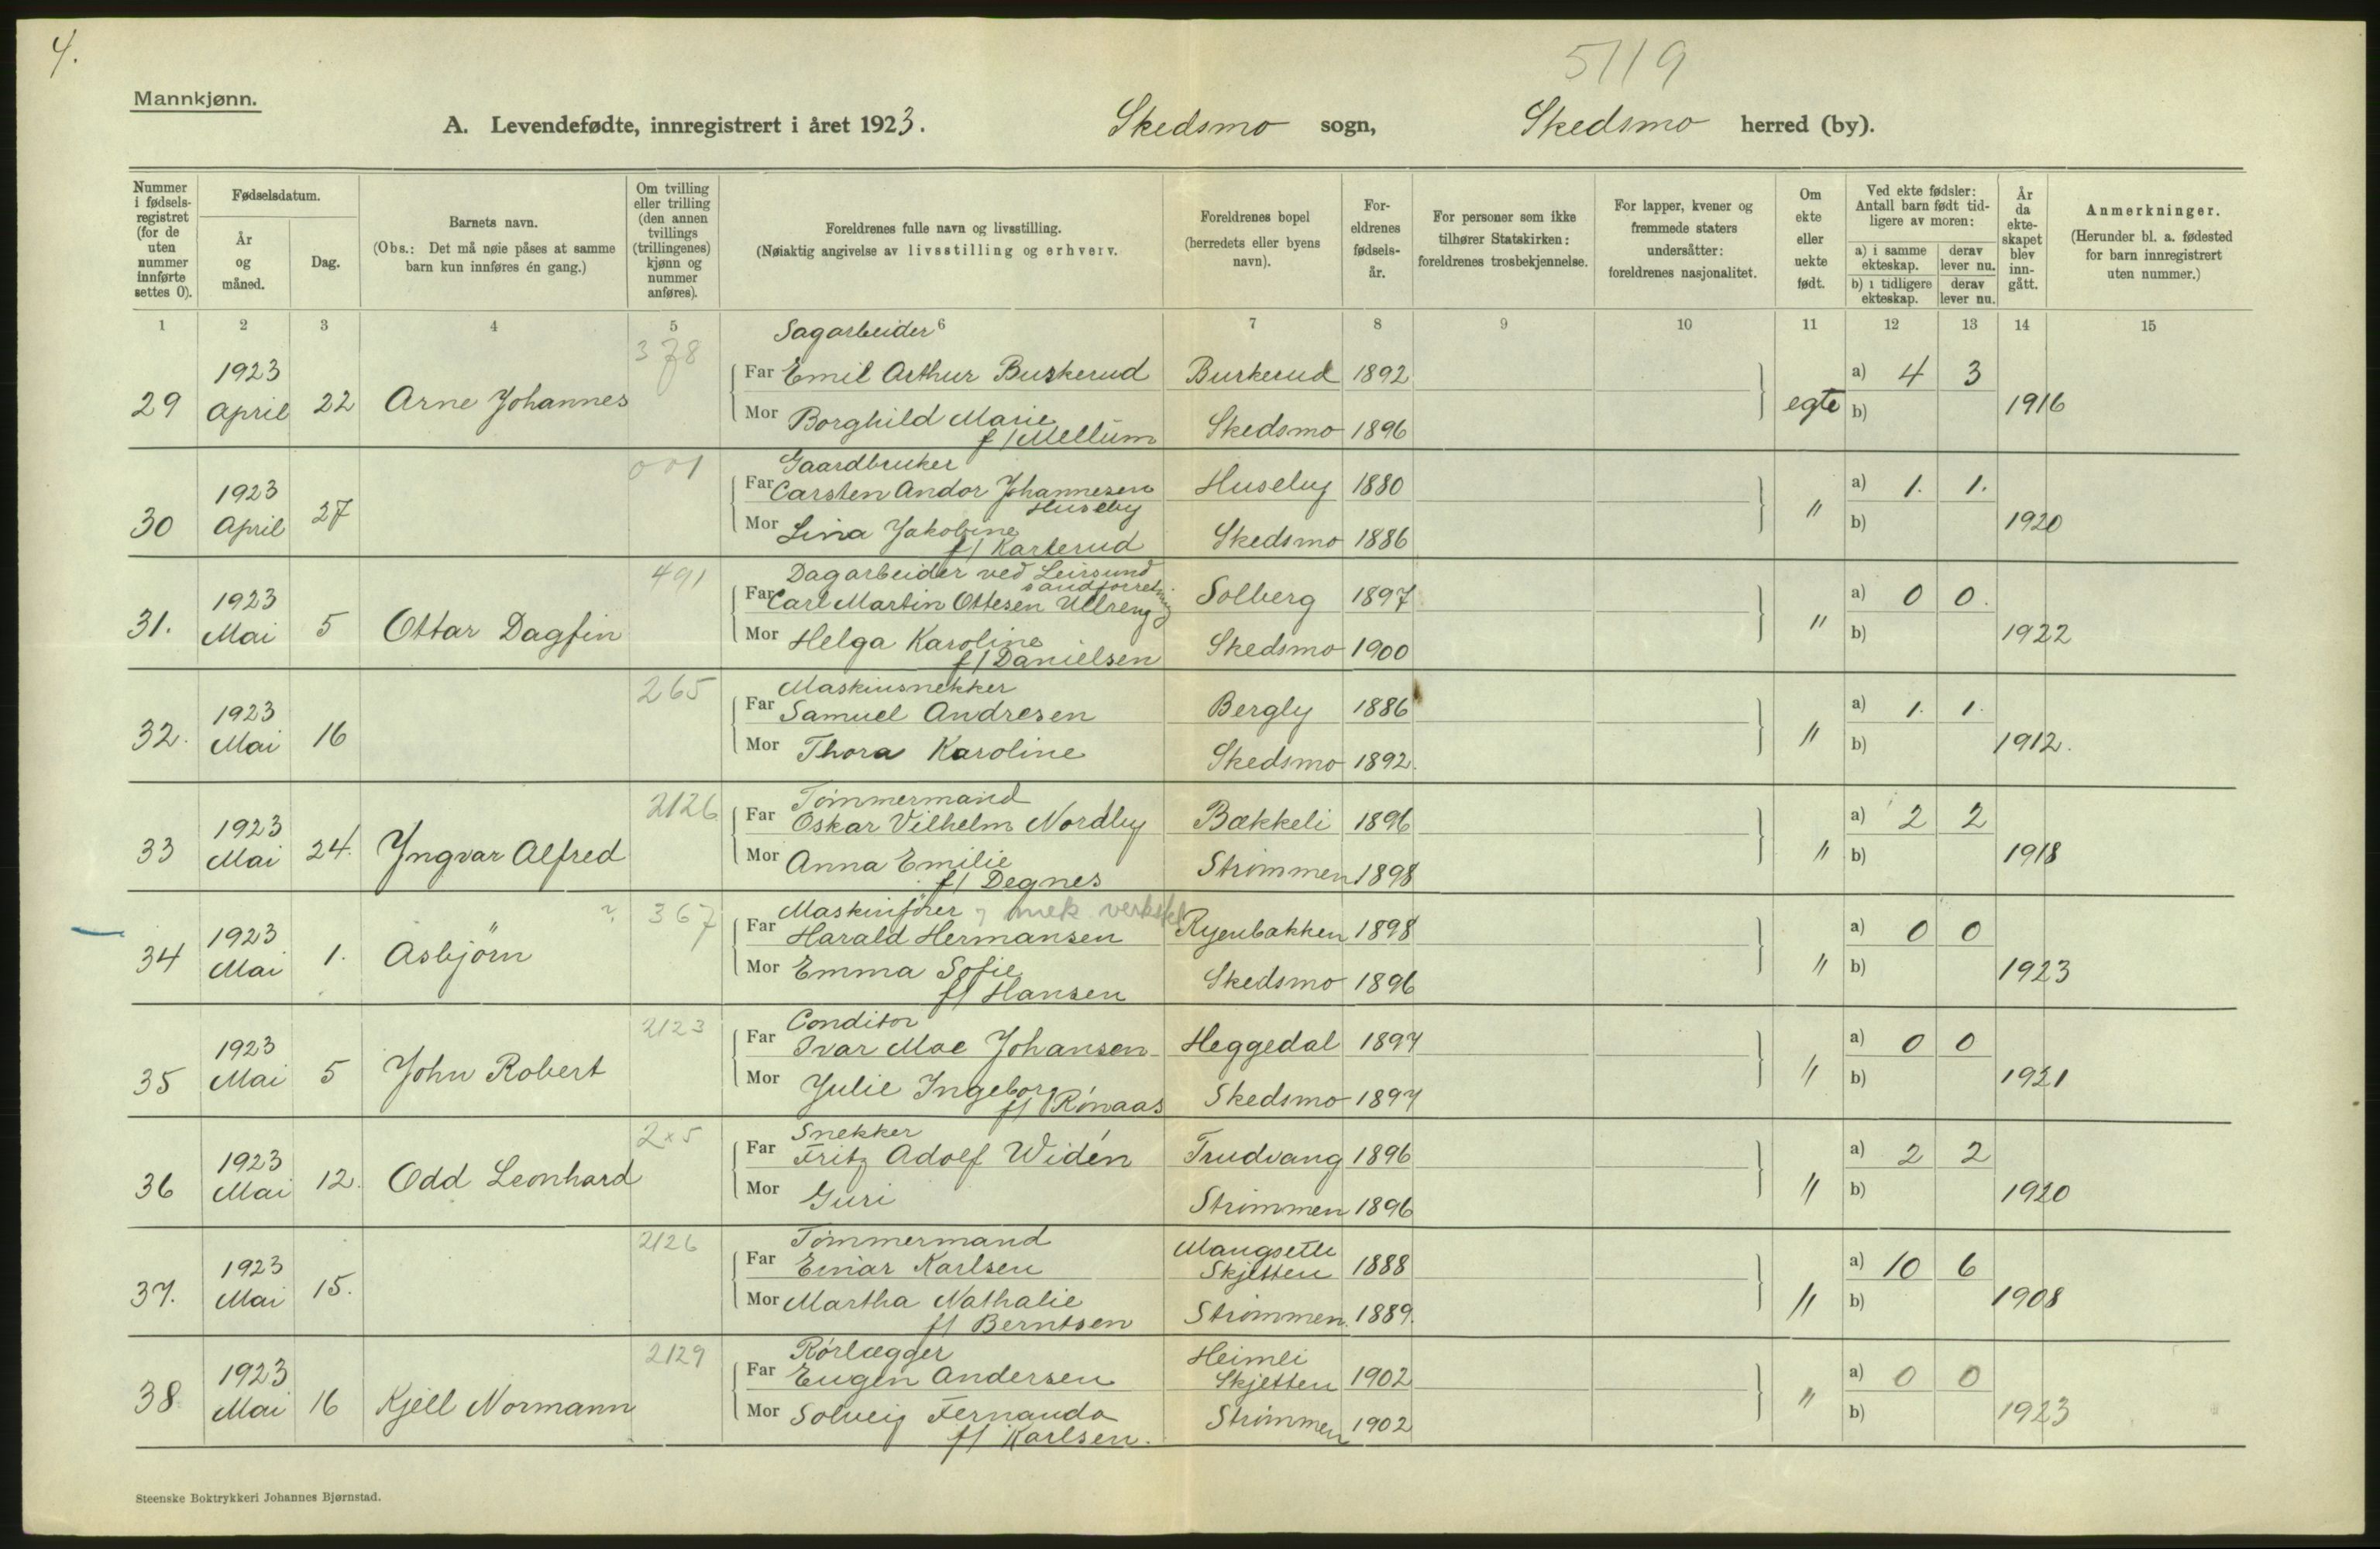 4.
5119
Mannkjønn.
A. Levendefødte, innregistrert i året 1923. Skedsmo sogn, Skedsmo herred (by).
Nummer i fødselsregistret (for de uten nummer innførte settes 0).
Fødselsdatum.
År og måned.
Dag.
Barnets navn.
(Obs.: Det må nøie påses at samme barn kun innføres én gang.)
Om tvilling eller trilling (den annen tvillings (trillingenes) kjønn og nummer anføres).
Foreldrenes fulle navn og livsstilling.
(Nøiaktig angivelse av livsstilling og erhverv.
Foreldrenes bopel (herredets eller byens navn).
Foreldrenes fødselsår.
For personer som ikke tilhører Statskirken: foreldrenes trosbekjennelse.
For lapper, kvener og fremmede staters undersåtter: foreldrenes nasjonalitet.
Om ekte eller uekte født.
Ved ekte fødsler: Antall barn født tidligere av moren:
a) i samme ekteskap. derav lever nu.
b) i tidligere ekteskap. derav lever nu.
År da ekteskapet blev inngått.
Anmerkninger.
(Herunder bl. a. fødested for barn innregistrert uten nummer.)
1 2 3 4 5 6 7 8 9 10 11 12 13 14 15
378 Sagarbeider
29 1923 April 22 Arne Johannes Far Emil Arthur Buskerud Buskerud 1892 egte a) 4 3 1916
Mor Borghild Marie f/ Mellum Skedsmo 1896 b)
001 Gaardbruker
30 1923 April 27 Far Carsten Andor Johannesen Huseby Huseby 1880 " a) 1. 1. 1920
Mor Lina Jakobine f/ Karterud Skedsmo 1886 b)
491 Dagarbeider ved Leirsund sandforretning
31. 1923 Mai 5 Ottar Dagfin Far Carl Martin Ottesen Ullreng Solberg 1897 " a) 0 0. 1922
Mor Helga Karoline f/ Danielsen Skedsmo 1900 b)
265 Maskinsnekker
32. 1923 Mai 16 Far Samuel Andresen Bergly 1886 " a) 1. 1. 1912.
Mor Thora Karoline Skedsmo 1892. b)
2126 Tømmermand
33 1923 Mai 24. Yngvar Alfred Far Oskar Vilhelm Nordby Bækkeli 1896 " a) 2 2 1918
Mor Anna Emilie f/ Degnes Strømmen 1898 b)
? 367 Maskinfører mek. verksted
34 1923 Mai 1. Asbjörn Far Harald Hermansen Ryenbakken 1898 " a) 0 0 1923
Mor Emma Sofie f/ Hansen Skedsmo 1896 b)
2123 Conditor
35 1923 Mai 5 John Robert Far Ivar Moe Johansen Heggedal 1897 " a) 0 0 1921
Mor Julie Ingeborg f/ Rønaas Skedsmo 1897 b)
2x5 Snekker
36 1923 Mai 12. Odd Leonhard Far Fritz Adolf Widén Trudvang 1896 " a) 2 2 1920
Mor Guri Strømmen 1896 b)
2126 Tømmermand
37. 1923 Mai 15. Far Einar Karlsen Mangsette Skjetten 1888 " a) 10 6 1908
Mor Martha Nathalie f/ Berntsen Strømmen. 1889. b)
2129 Rørlægger
38. 1923 Mai 16 Kjell Normann Far Eugen Andersen Heimli Skjetten 1902 " a) 0 0 1923
Mor Solveig Fernanda f/ Karlsen. Strømmen 1902 b)
Steenske Boktrykkeri Johannes Bjørnstad.